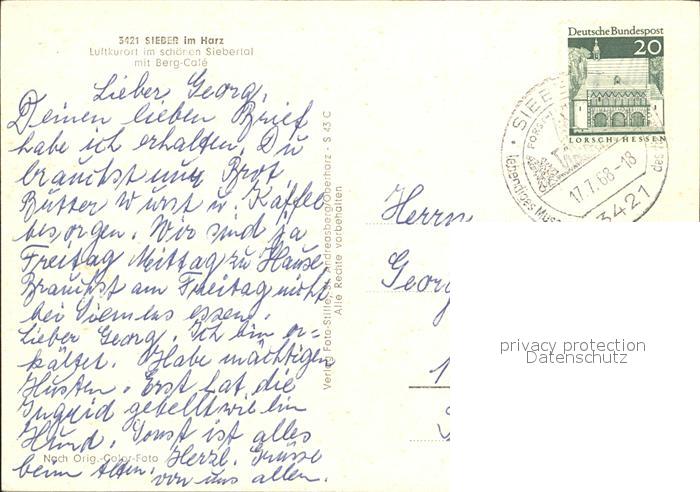 3421 SIEBER im Harz
Luftkurort im schönen Siebertal
mit Berg-Café
Lieber Georg,
Deinen lieben Brief
habe ich erhalten. Du
brauchst nur Brot
Butter Wurst u. Kaffee
besorgen. Wir sind ja
Freitag Mittag zu Hause
Brauchst am Freitag nicht
bei Siemens essen.
Lieber Georg. Ich bin er=
kältet. Habe mächtigen
Husten. Erst hat die
Ingrid gebellt wie ein
Hund. Sonst ist alles
beim Alten. Herzl. Grüsse
von uns allen.
Nach Orig.-Color-Foto
Verlag Foto-Stille, St. Andreasberg/Oberharz - S 43 C
Alle Rechte vorbehalten
Deutsche Bundespost
20
LORSCH/HESSEN
SIEB
17.7.68-18
3421
Herrn
Georg
1
privacy protection
Datenschutz